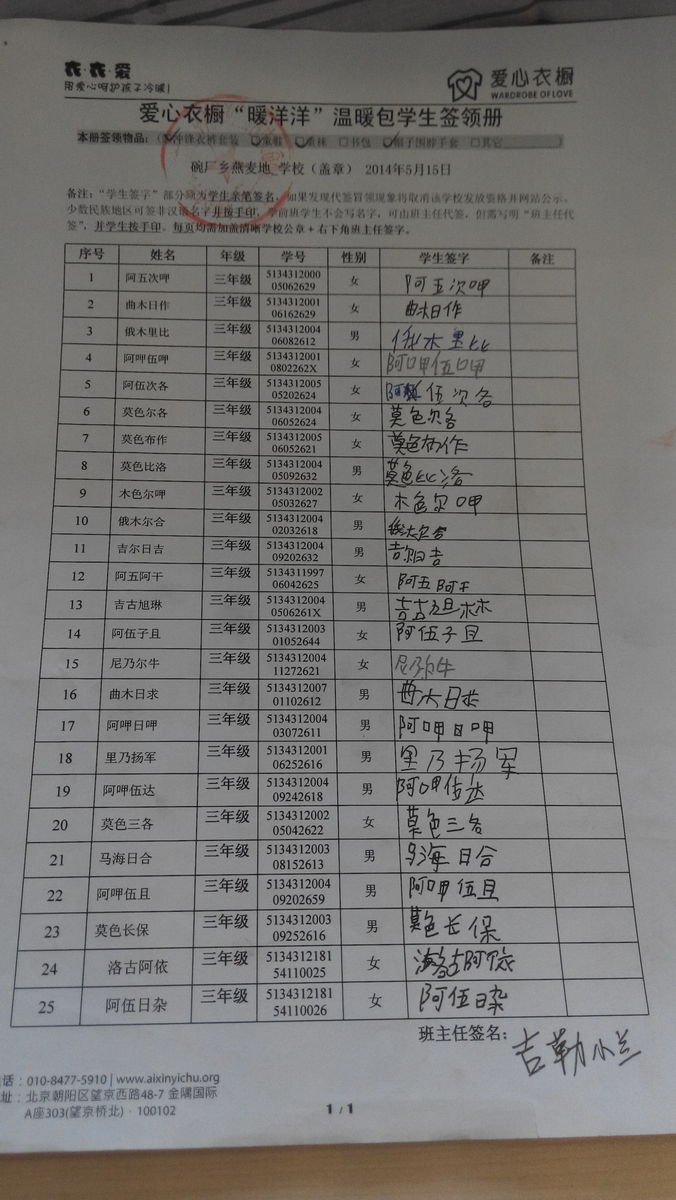 衣·衣·爱
用爱心呵护孩子冷暖!
爱心衣橱
WARDROBE OF LOVE
爱心衣橱“暖洋洋”温暖包学生签领册
本册签领物品：（☑冲锋衣裤套装 ☑童鞋 ☑童袜 □书包 ☑帽子围脖手套 □其它
碗厂乡燕麦地 学校（盖章） 2014年5月15日
备注：“学生签字”部分须为学生亲笔签名，如果发现代签冒领现象将取消该学校发放资格并网站公示。
少数民族地区可签非汉语名字并按手印，学前班学生不会写名字，可由班主任代签，但需写明“班主任代
签”，并学生按手印。每页均需加盖清晰学校公章+右下角班主任签字。
序号 姓名 年级 学号 性别 学生签字 备注
1 阿五次呷 三年级 5134312000 05062629 女 阿五次呷
2 曲木日作 三年级 5134312001 06162629 女 曲木日作
3 俄木里比 三年级 5134312004 06082612 男 俄木里比
4 阿呷伍呷 三年级 5134312001 0802262X 女 阿呷伍呷
5 阿伍次各 三年级 5134312005 05202624 女 阿伍次各
6 莫色尔各 三年级 5134312004 06052624 女 莫色尔各
7 莫色布作 三年级 5134312005 06052621 女 莫色布作
8 莫色比洛 三年级 5134312004 05092632 男 莫色比洛
9 木色尔呷 三年级 5134312002 05032627 女 木色尔呷
10 俄木尔合 三年级 5134312004 02032618 男 俄木尔合
11 吉尔日吉 三年级 5134312004 09202632 男 吉尔日吉
12 阿五阿干 三年级 5134311997 06042625 女 阿五阿干
13 吉古旭琳 三年级 5134312004 0506261X 男 吉古旭琳
14 阿伍子且 三年级 5134312003 01052644 女 阿伍子且
15 尼乃尔牛 三年级 5134312004 11272621 女 尼乃尔牛
16 曲木日求 三年级 5134312007 01102612 男 曲木日求
17 阿呷日呷 三年级 5134312004 03072611 男 阿呷日呷
18 里乃扬军 三年级 5134312001 06252616 男 里乃扬军
19 阿呷伍达 三年级 5134312004 09242618 男 阿呷伍达
20 莫色三各 三年级 5134312002 05042622 女 莫色三各
21 马海日合 三年级 5134312003 08152613 男 马海日合
22 阿呷伍且 三年级 5134312004 09202659 男 阿呷伍且
23 莫色长保 三年级 5134312003 09252616 男 莫色长保
24 洛古阿依 三年级 5134312181 54110025 女 洛古阿依
25 阿伍日杂 三年级 5134312181 54110026 女 阿伍日杂
班主任签名：吉勒小兰
话：010-8477-5910 | www.aixinyichu.org
址：北京朝阳区望京西路48-7 金隅国际
A座303(望京桥北) · 100102
1 / 1